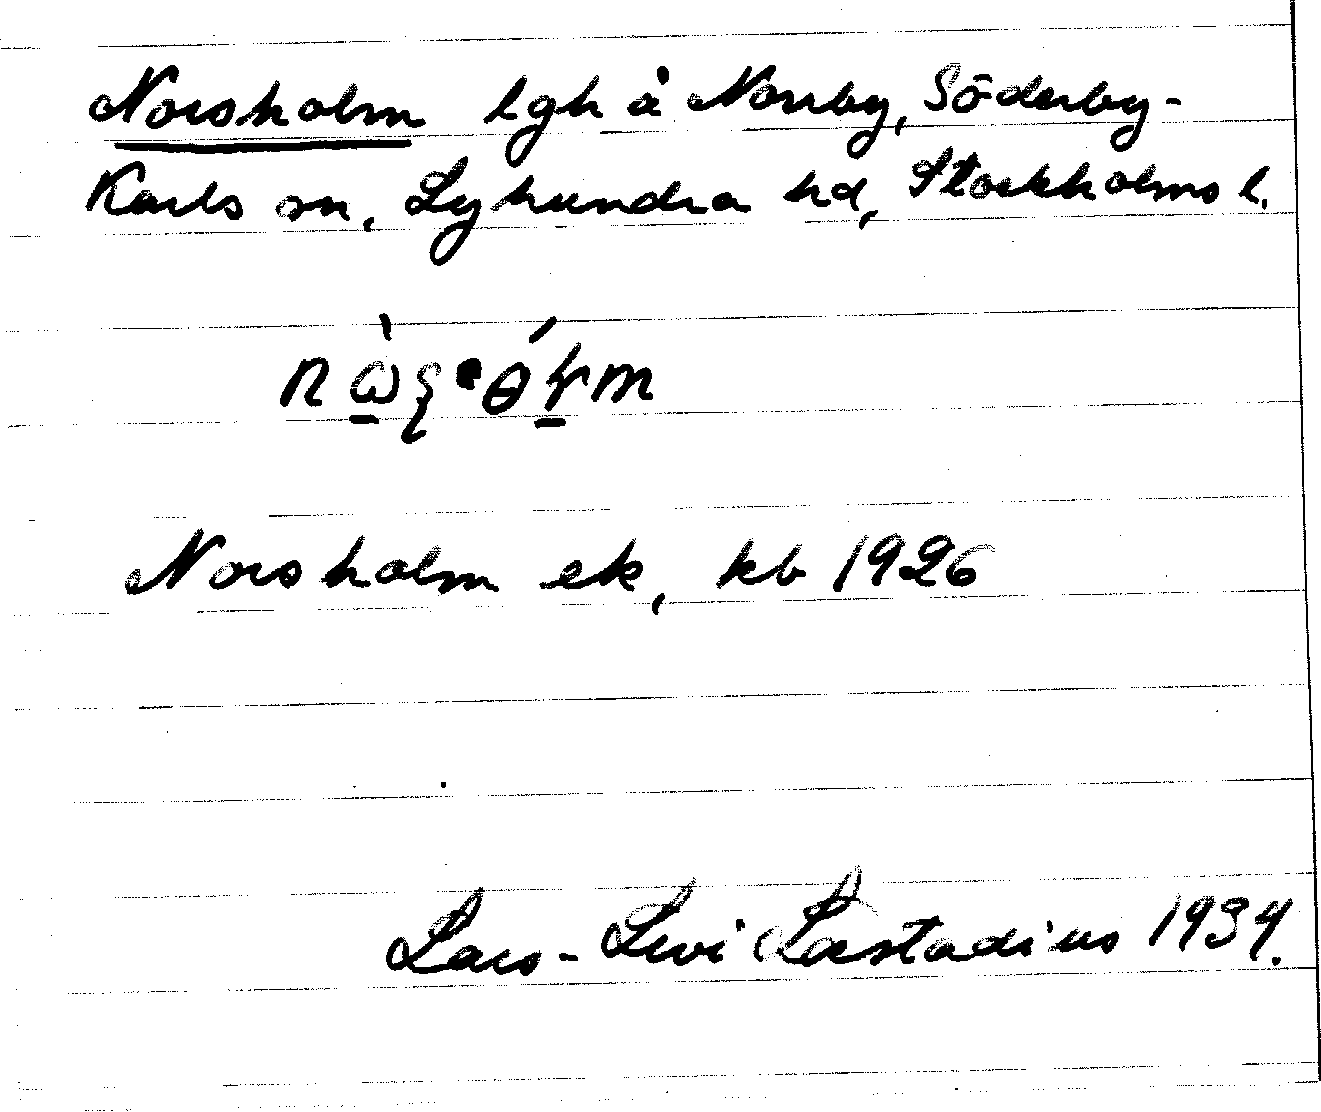 Norsholm lgh å Norrby, Söderby-
Karls sn, Lyhundra hd, Stockholms l.
Norsholm ek, kb 1926
Lars-Levi Læstadius 1934.